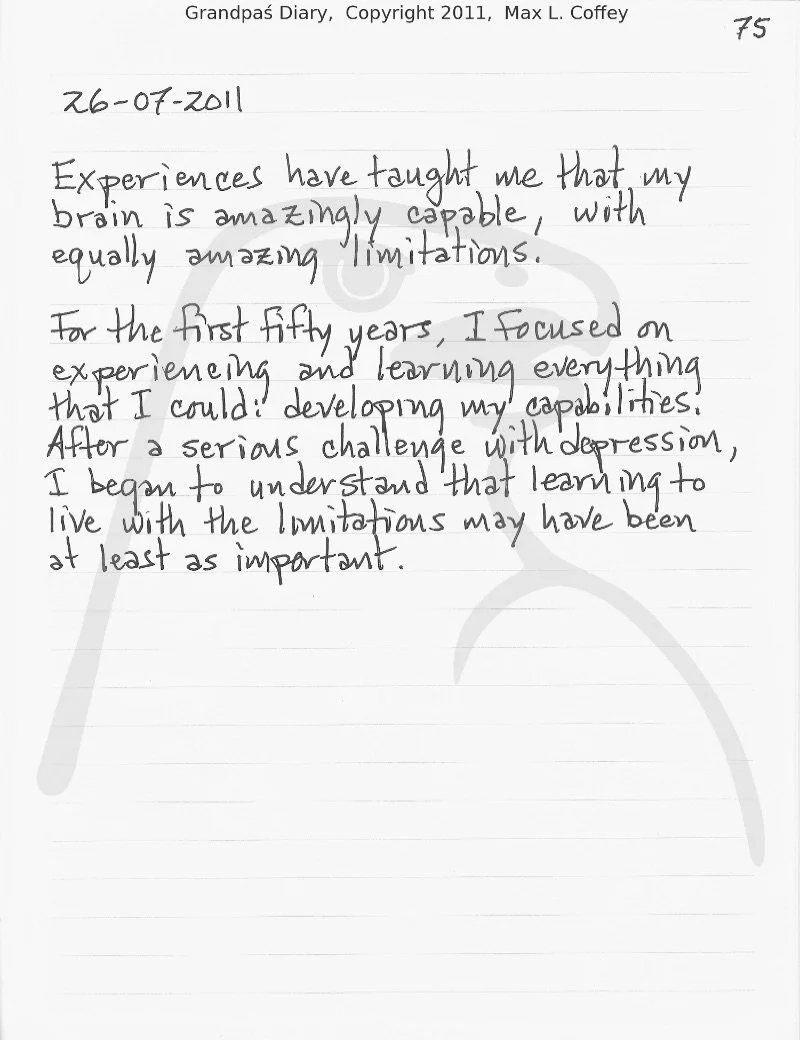 Grandpaś Diary, Copyright 2011, Max L. Coffey
75
26-07-2011
Experiences have taught me that my
brain is amazingly capable, with
equally amazing limitations.
For the first fifty years, I focused on
experiencing and learning everything
that I could: developing my capabilities.
After a serious challenge with depression,
I began to understand that learning to
live with the limitations may have been
at least as important.